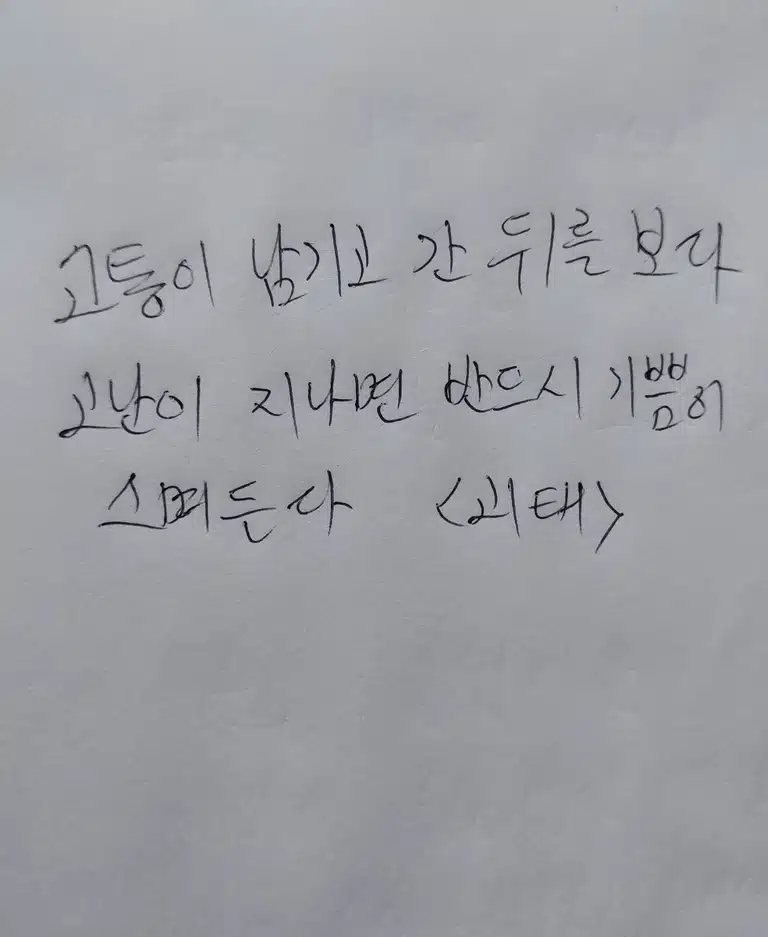 고통이 남기고 간 뒤를 보라
고난이 지나면 반드시 기쁨이
스며든다 <괴테>